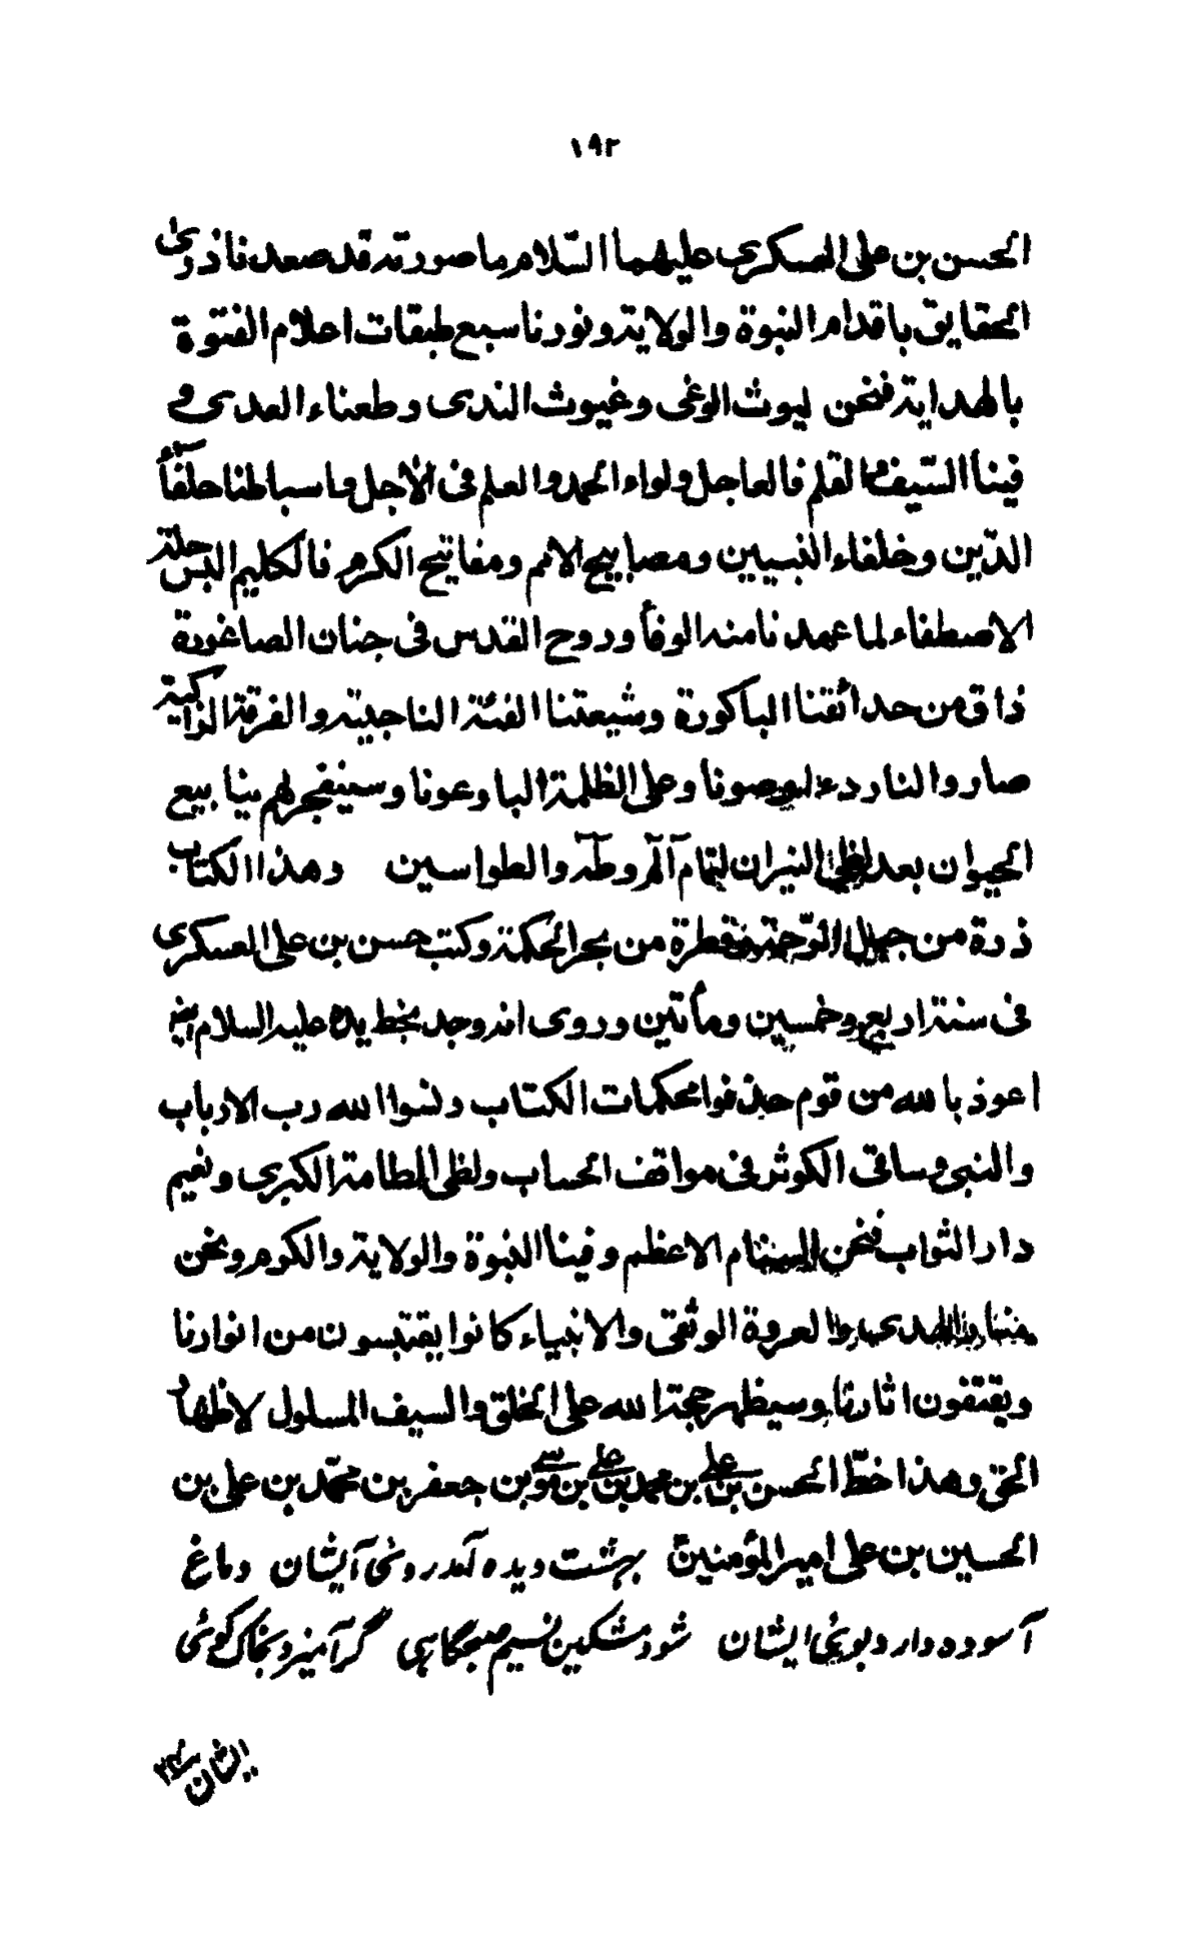 ١٩٢
الحسن بن على العسكري عليهما السّلام ما صورته قد صعدنا ذرى
الحقايق باقدام النبوة والولاية ونورنا سبع طبقات اعلام الفتوة
بالهداية فنحن ليوث الوغى وغيوث الندى وطعناء العدى و
فينا السّيف والقلم فى العاجل ولواء الحمد والعلم فى الآجل واسباطنا حلفآء
الدّين وخلفاء النبيين ومصابيح الامم ومفاتيح الكرم فالكليم البس حلة
الاصطفاء لما عهدنا منه الوفأ وروح القدس فى جنان الصاغورة
ذاق من حدائقنا الباكورة وشيعتنا الفئة الناجية والفرقة الزاكية
صاروا لنا ردءا وصونا وعلى الظلمة البا وعونا وسينفجر لهم ينابيع
الحيوان بعد لظى النيران لتمام آلم وطه والطواسين وهذا الكتاب
ذرة من جبل الرّحمة وقطرة من بحر الحكمة وكتب حسن بن على العسكرى
فى سنة اربع وخمسين ومأتين وروى انه وجد بخط يده عليه السلام ايضا
اعوذ بالله من قوم حذفوا محكمات الكتاب ونسوا الله رب الارباب
والنبى وساقى الكوثر فى مواقف الحساب ولظى الطامة الكبرى ونعيم
دار الثواب فنحن السنام الاعظم وفينا النبوة والولاية والكرم ونحن
منار الهدى والعروة الوثقى والانبياء كانوا يقتبسون من انوارنا
ويقتفون اثارنا وسيظهر حجة الله على الخلق والسيف المسلول لاظهار
الحق وهذا خطّ الحسن بن على بن محمد بن على بن موسى بن جعفر بن محمّد بن على بن
الحسين بن على امير المؤمنين بهشت ديده آمد روئى آيشان دماغ
آسوده دارد بوئى ايشان شود مشكين نسيم صبحگاهى گر آميزد بخاك كوئى
ايشان